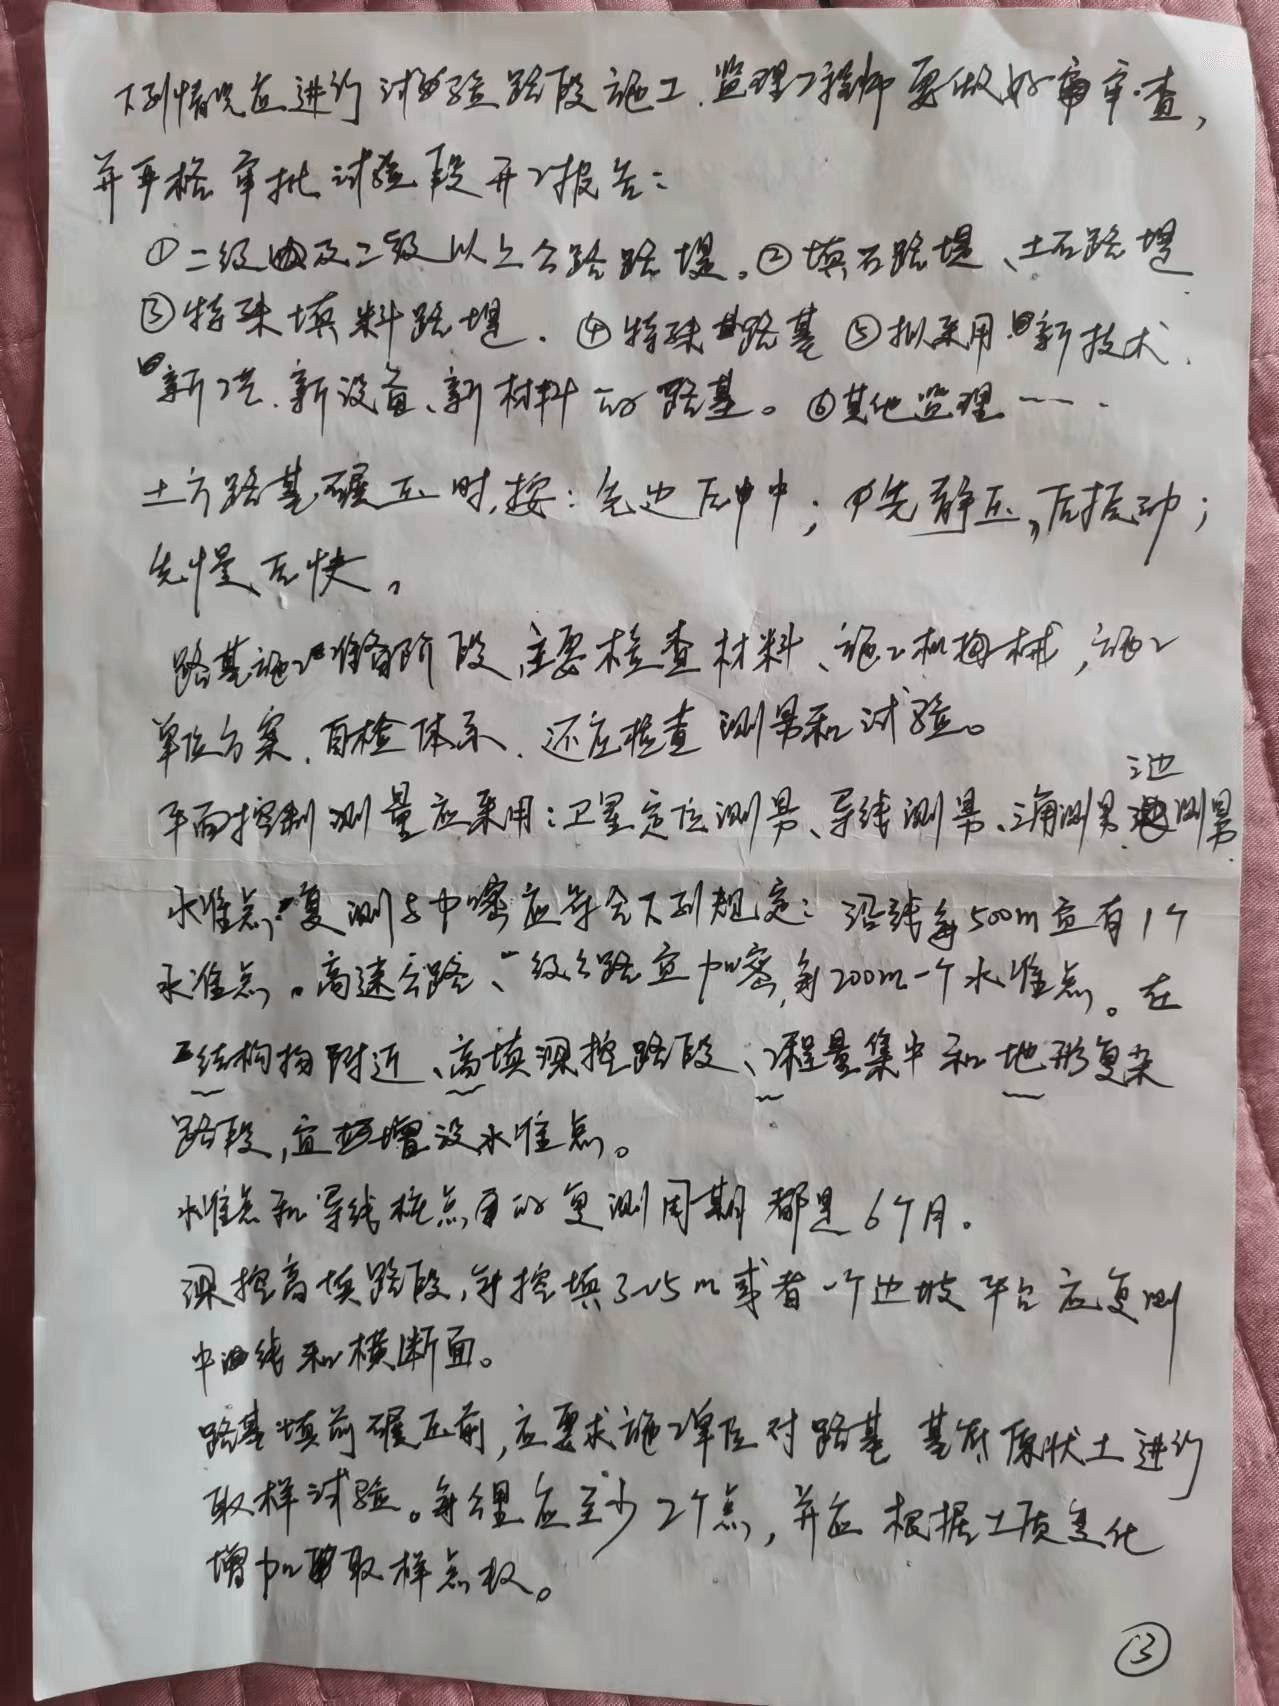 下列情况应进行试验路段施工、监理工程师要做好审查，
并严格审批试验段开工报告：
①二级及二级以上公路路堤。②填石路堤、土石路堤
③特殊填料路堤、④特殊路基⑤拟采用新技术、
新工艺、新设备、新材料的路基。⑥其他监理……
土方路基碾压时，按：先边后中；先静压，后振动；
先慢后快。
路基施工准备阶段，主要检查材料、施工机械，施工
单位方案、自检体系、还应检查测量和试验。
三边
平面控制测量应采用：卫星定位测量、导线测量、三角测量、测量
水准点复测与加密应符合下列规定：沿线每500m宜有1个
水准点。高速公路、一级公路宜加密，每200m一个水准点。在
结构物附近、高填深挖路段、工程量集中和地形复杂
路段，宜增设水准点。
水准点和导线桩点的复测周期都是6个月。
深挖高填路段，每挖填3~5m或者一个边坡平台应复测
中线和横断面。
路基填前碾压前，应要求施工单位对路基基底原状土进行
取样试验。每公里应至少2个点，并应根据土质变化
增加取样点数。
③